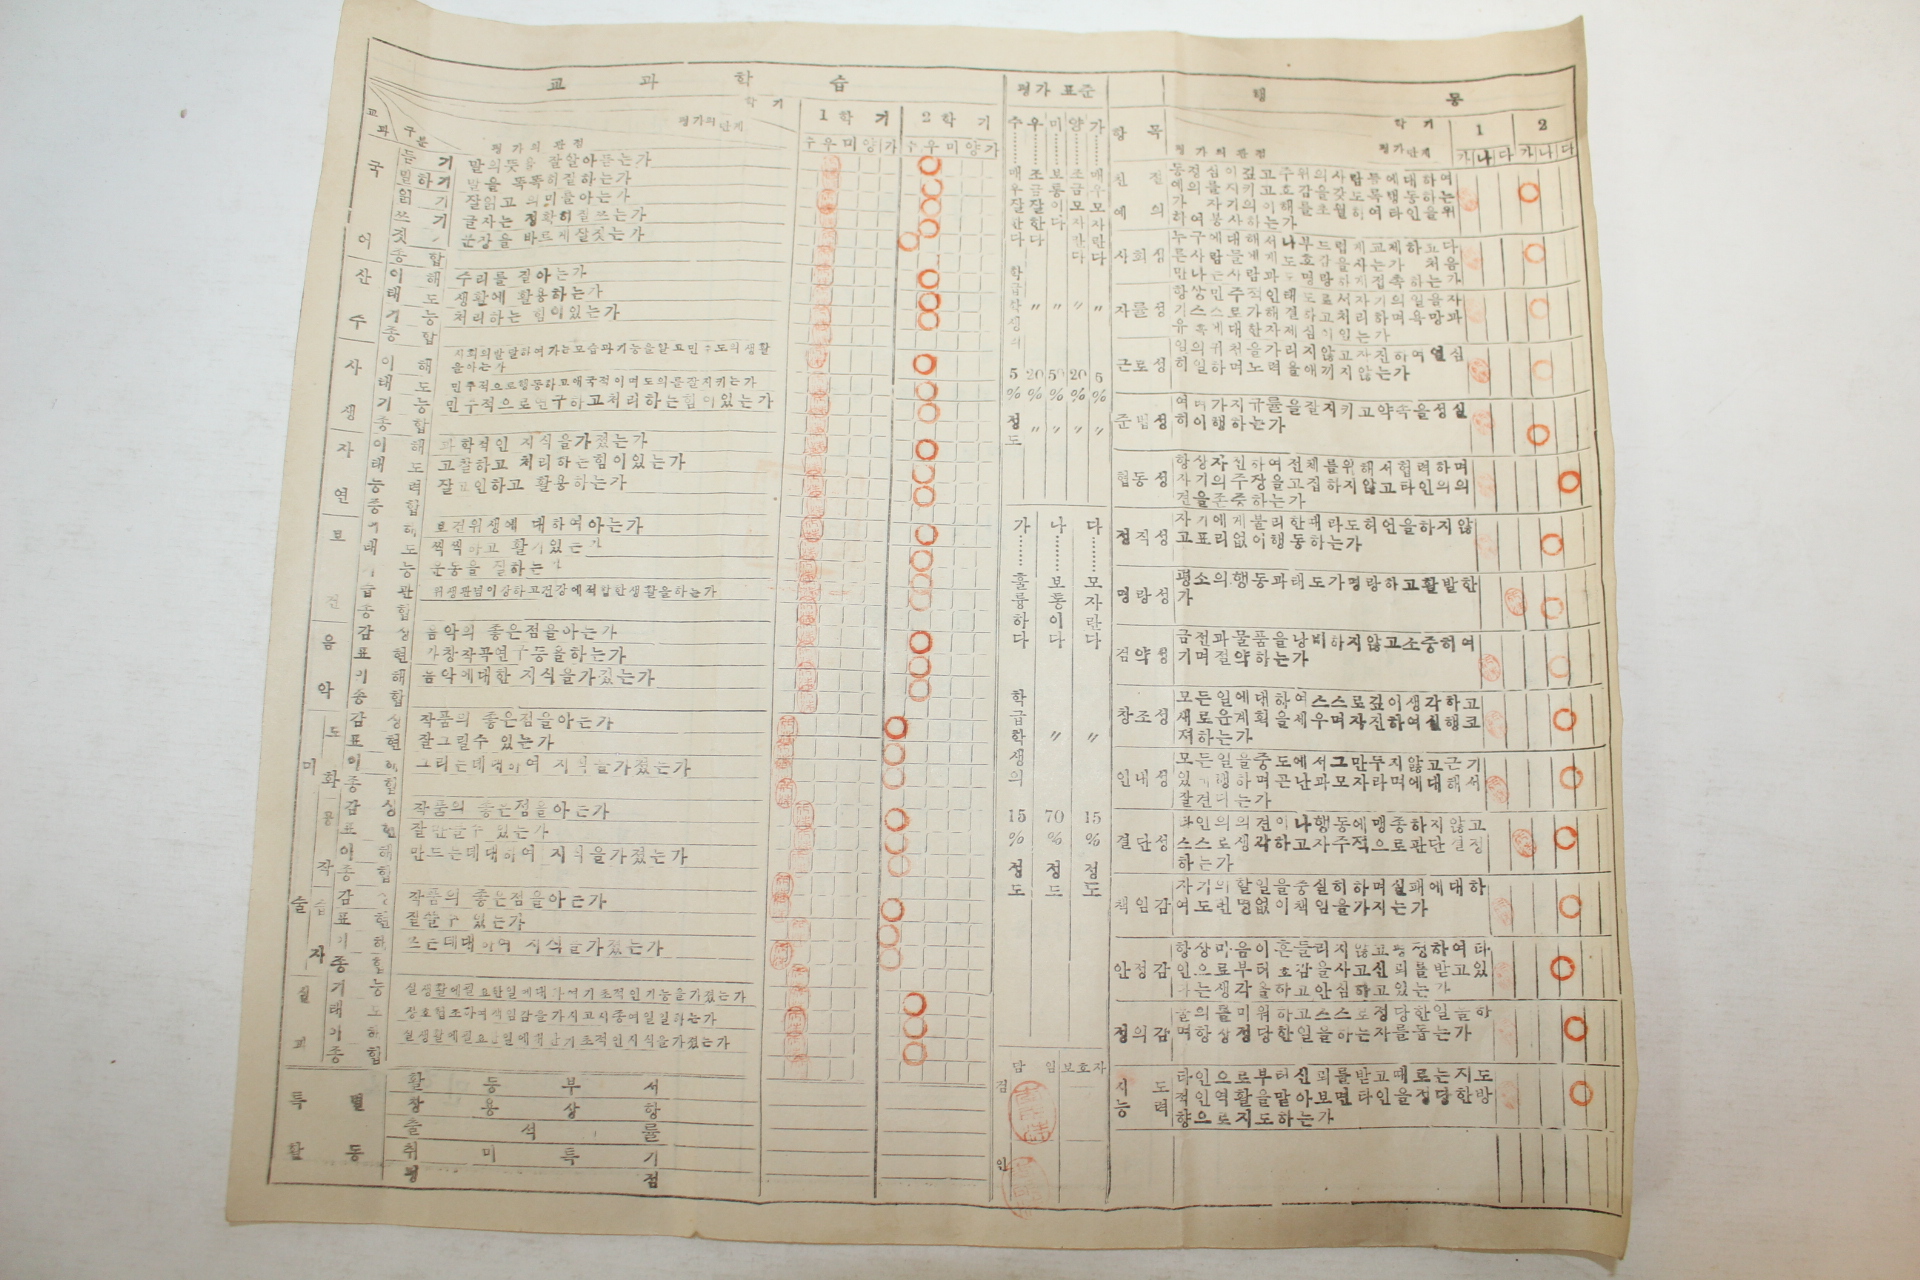 교 과 학 습
학 기
평가의 단계
1 학 기
2 학 기
교 과
구 분
평 가 의 관 점
수 우 미 양 가
수 우 미 양 가
국 어
듣 기 말의뜻을 잘알아듣는가
말하기 말을 똑똑히잘하는가
읽 기 잘읽고 의미를아는가
쓰 기 글자는 정확히잘쓰는가
짓 기 문장을 바르게잘짓는가
종 합
산 수
이 해 수리를 잘아는가
태 도 생활에 활용하는가
기 능 처리하는 힘이있는가
종 합
사 생
이 해
을아는가
태 도 민주적으로행동하고애국적이며도의를잘지키는가
기 능 민주적으로연구하고처리하는힘이있는가
종 합
자 연
이 해 과학적인 지식을가졌는가
태 도 고찰하고 처리하는힘이있는가
능 력 활용하는가
종 합
보 건
이 해 보건위생에 대하여아는가
태 도
기 능 운동을 잘하는가
습 관 위생관념이강하고건강에적합한생활을하는가
종 합
음 악
감 상 음악의 좋은점을아는가
표 현
이 해 음악에대한 지식을가졌는가
종 합
미 술
도 화
감 상 작품의 좋은점을아는가
표 현 잘그릴수 있는가
이 해 그리는데대하여 지식을가졌는가
종 합
공 작
감 상 작품의 좋은점을아는가
표 현 잘만들수 있는가
이 해 만드는데대하여 지식을가졌는가
종 합
습 자
감 상 작품의 좋은점을아는가
표 현 잘쓸수 있는가
이 해 쓰는데대하여 지식을가졌는가
종 합
실 과
기 능 실생활에필요한일에대하여기초적인기능을가졌는가
태 도
이 해
종 합
특 별 활 동
활 동 부 서
창 용 상 항
출 석 률
취 미 특 기
평 점
평가 표준
수……매우잘한다
우……조금잘한다
미……보통이다
양……조금모자란다
가……매우모자란다
학급학생의 〃 〃 〃 〃
5 20 50 20 5
% % % % %
정도 〃 〃 〃 〃
가……훌륭하다
나……보통이다
다……모자란다
학급학생의 〃 〃
15 70 15
% % %
정도 정도 정도
담 임 보호자
점
인
행 동
학 기 1 2
항 목
평 가 의 관 점
평가단계
가 나 다 가 나 다
친 절
예 의
동정심이깊고주위의사람들에대하여
예의를지키고호감을갖도록행동하는
가 자기의이해를초월하여타인을위
하여봉사하는가
사회성
누구에대해서나부드럽게교제하고다
른사람들에게도호감을사는가 처음
만나는사람과도명랑하게접촉하는가
자률성
항상민주적인태도로서자기의일을자
기스스로가해결하고처리하며욕망과
유혹에대한자제심이있는가
근로성
임의귀천을가리지않고자진하여열심
히일하며노력을애끼지않는가
준법성
여며가지규률을잘지키고약속을성실
히이행하는가
협동성
항상자진하여전체를위해서협력하며
자기의주장을고집하지않고타인의의
견을존중하는가
정직성
자기에게불리한때라도허언을하지않
고표리없이행동하는가
명랑성
평소의행동과태도가명랑하고활발한
가
검약성
금전과물품을낭비하지않고소중히여
기며절약하는가
창조성
모든일에대하여스스로깊이생각하고
새로운계획을세우며자진하여실행코
져하는가
인내성
모든일을중도에서그만두지않고근기
있게행하며곤난과모자라며에대해서
잘견디는가
결단성
타인의의견이나행동에맹종하지않고
스스로생각하고자주적으로판단결정
하는가
책임감
자기의할일을충실히하며실패에대하
여도변명없이책임을가지는가
안정감
항상마음이흔들리지않고평정하여타
인으로부터호감을사고신뢰를받고있
다는생각을하고안심하고있는가
정의감
불의를미워하고스스로정당한일을하
며항상정당한일을하는자를돕는가
지 도
능 력
타인으로부터신뢰를받고때로는지도
적인역활을맡아보면타인을정당한방
향으로지도하는가